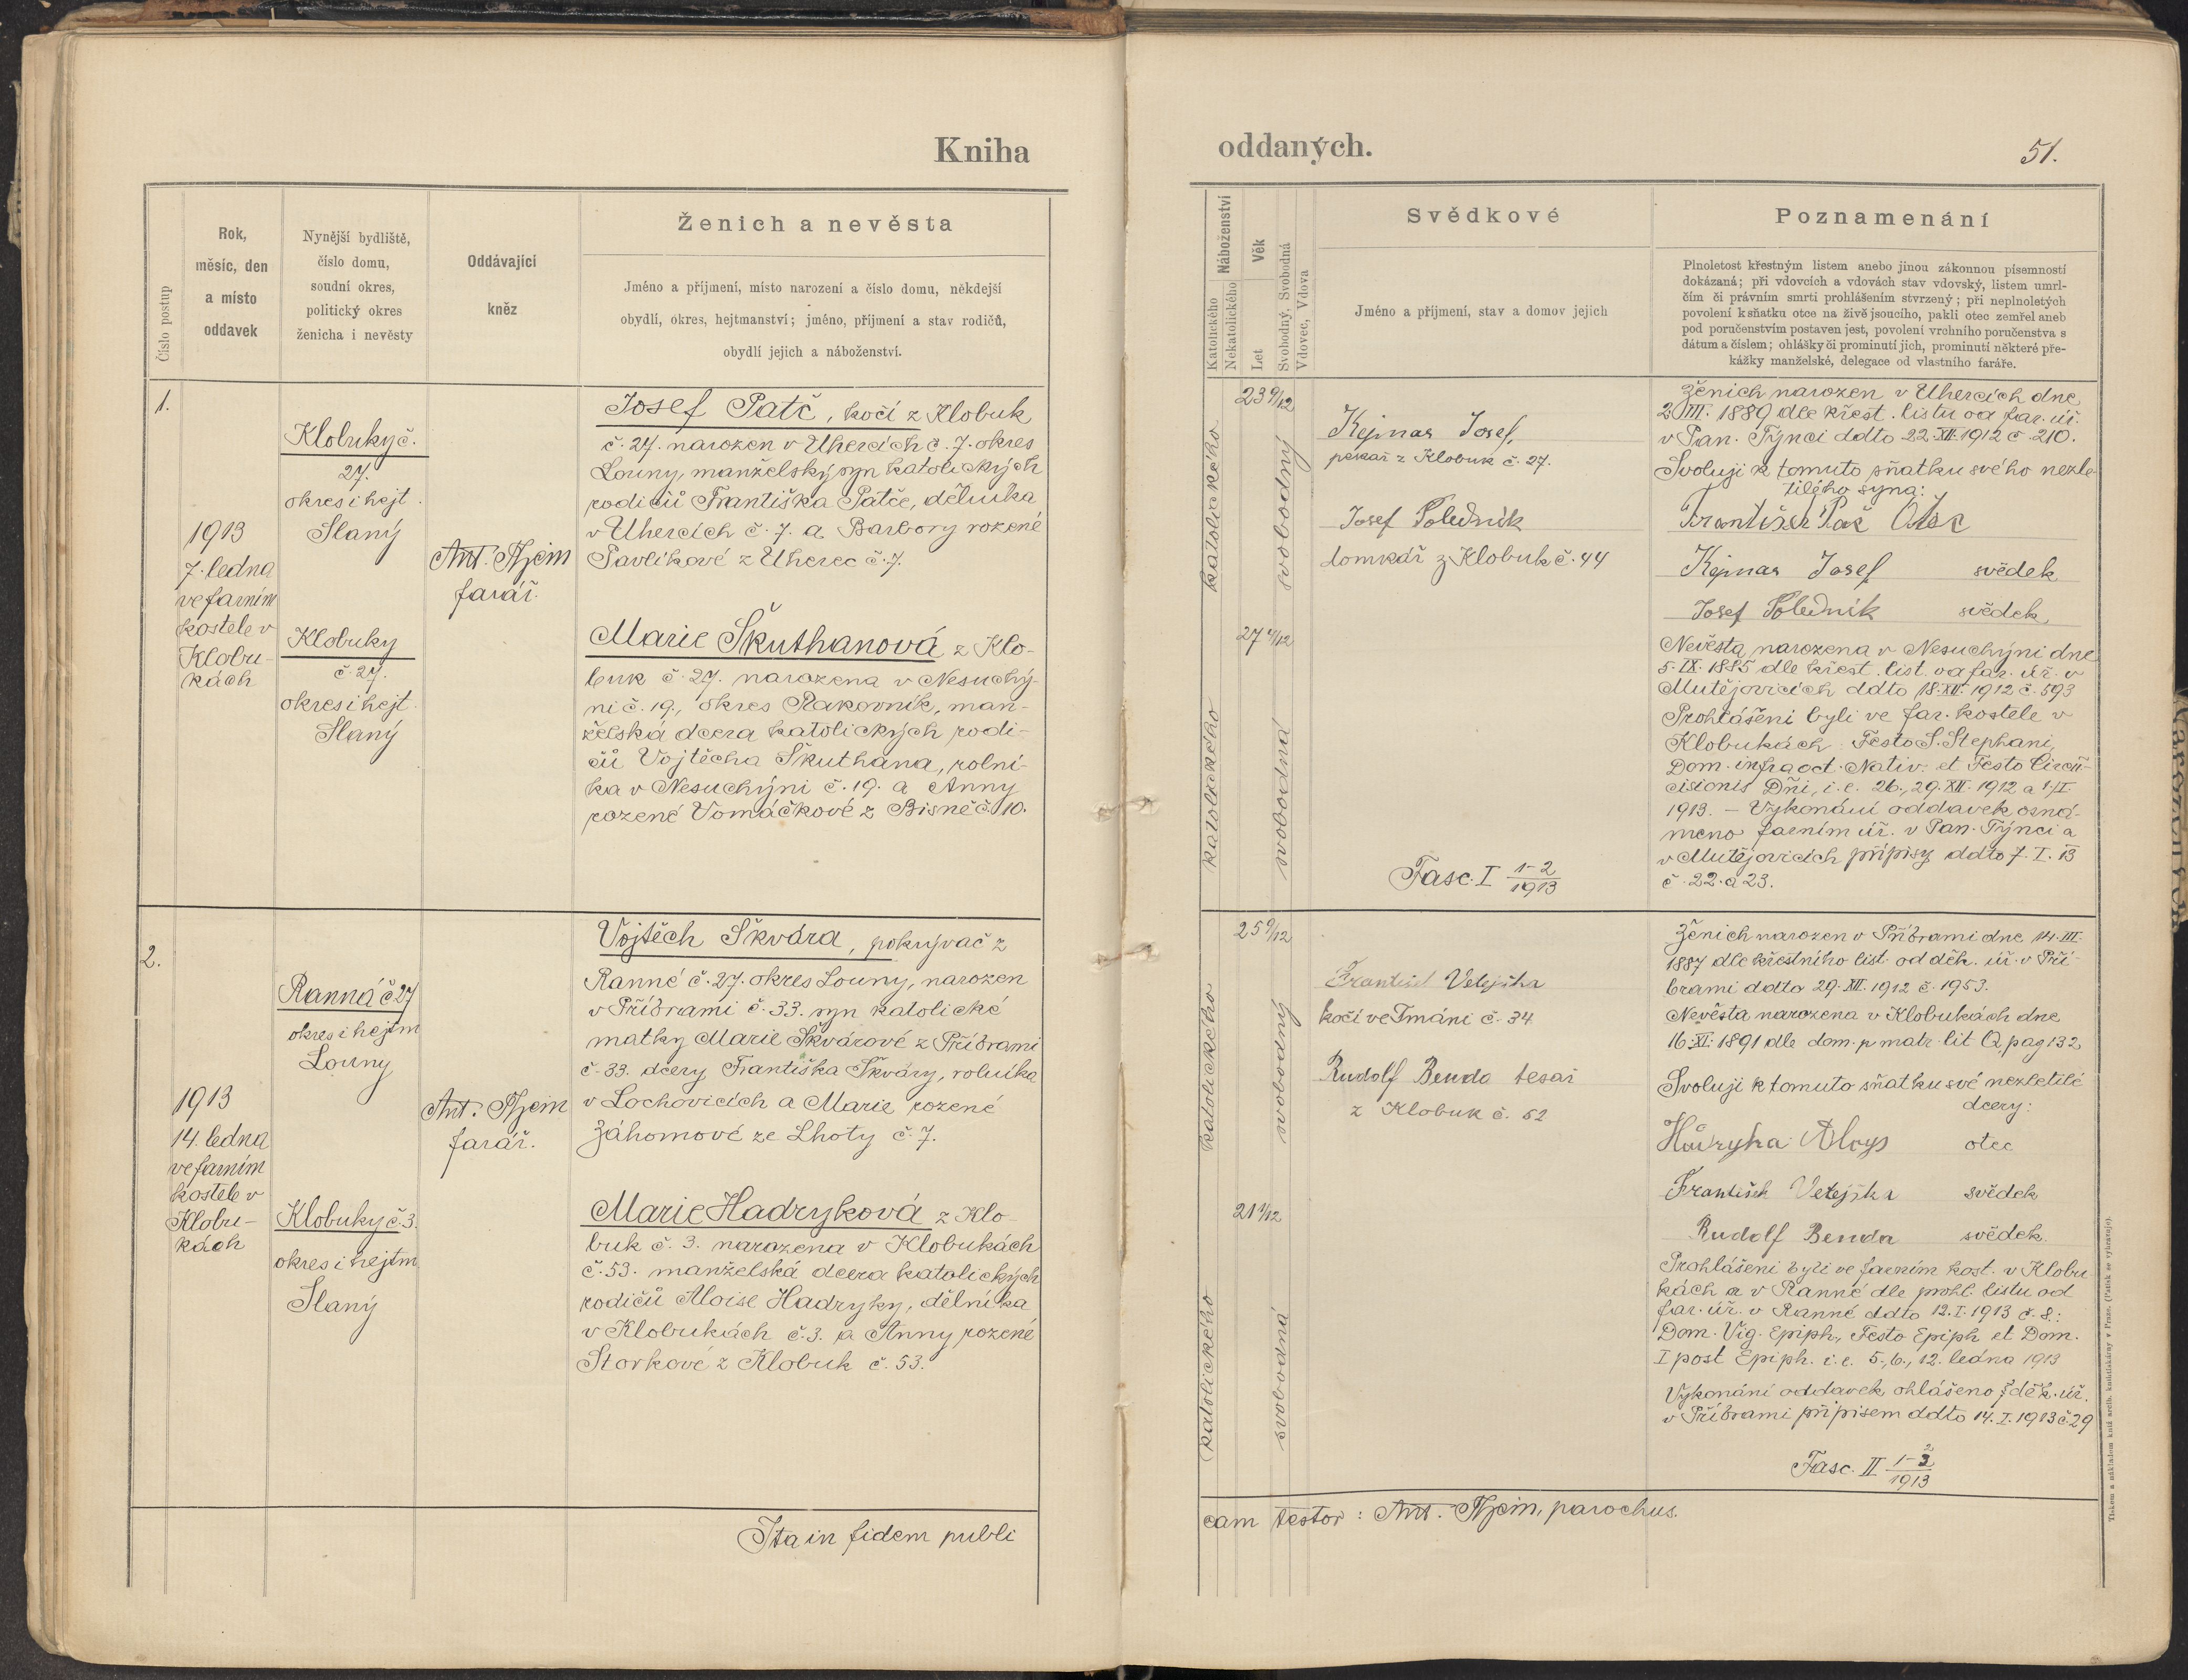 Kniha
Číslo postup
Rok,
měsíc, den
a místo
oddavek
Nynější bydliště,
číslo domu,
soudní okres,
politický okres
ženicha i nevěsty
Oddávající
kněz
Ženich a nevěsta
Jméno a příjmení, místo narození a číslo domu, někdejší
obydlí, okres, hejtmanství; jméno, příjmení a stav rodičů,
obydlí jejich a náboženství.
1.
1913
7. ledna
ve farním
kostele v
Klobu-
kách
Klobuky č.
27.
okres i hejt.
Slaný
Klobuky
č. 27.
okres i hejt.
Slaný
Ant.
farář.
Josef Patč, kočí z Klobuk
č. 27. narozen v Uhercích č. 7. okres
Louny, manželský syn katolických
rodičů Františka Patče, dělníka
v Uhercích č. 7. a Barbory rozené
Pavlíkové z Uherec č. 7.
Marie Škuthanová z Klo-
buk č. 27. narozena v Nesuchy-
ni č. 19., okres Rakovník, man-
želská dcera katolických rodi-
čů Vojtěcha Škuthana, rolní-
ka v Nesuchyni č. 19. a Anny
rozené Vomáčkové z č. 10.
2.
1913
14. ledna
ve farním
kostele v
Klobu-
kách
Ranná č 27
okres i hejtm
Louny
Klobuky č. 3.
okres i hejtm
Slaný
Ant.
farář.
Vojtěch Škvára, pokrývač z
Ranné č. 27. okres Louny, narozen
v Příbrami č. 33. syn katolické
matky Marie Škvárové z Příbrami
č. 33. dcery Františka Škváry, rolníka
v Lochovicích a Marie rozené
Záhomové ze Lhoty č. 7.
Marie Hadryková z Klo-
buk č. 3. narozena v Klobukách
č. 53. manželská dcera katolických
rodičů Aloise Hadryky, dělníka
v Klobukách č. 3. a Anny rozené
Štorkové z Klobuk č. 53.
Ita in fidem publi
oddaných.
51.
Náboženství
Katolického
Nekatolického
Věk
Let
Svobodný, Svobodná
Vdovec, Vdova
Svědkové
Jméno a příjmení, stav a domov jejich
Poznamenání
Plnoletost křestným listem anebo jinou zákonnou písemností
dokázaná; při vdovcích a vdovách stav vdovský, listem umrl-
čím či právním smrti prohlášením stvrzený; při neplnoletých
povolení k sňatku otce na živě jsoucího, pakli otec zemřel aneb
pod poručenstvím postaven jest, povolení vrchního poručenstva s
dátum a číslem; ohlášky či prominutí jich, prominutí některé pře-
kážky manželské, delegace od vlastního faráře.
katolického
23 9/12
svobodný
Kejmar Josef,
pekař z Klobuk č. 27.
Josef Poledník
domkář z Klobuk č. 44
katolického
27 4/12
svobodná
Fasc. I 1-2
1913
Ženich narozen v Uhercích dne
2. III. 1889 dle křest. listu od far. úř.
v Pan. Týnci ddto 22. XII. 1912 č. 210.
Svoluji k tomuto sňatku svého nezle-
tilého syna:
František Pač Otec
Kejmar Josef svědek
Josef Poledník svědek
Nevěsta narozena v Nesuchyni dne
5. IX. 1885 dle křest. list. od far. úř. v
Mutějovicích ddto 18. XII. 1912 č. 593
Prohlášeni byli ve far. kostele v
Klobukách: Festo S. Stephani,
Dom. infra oct. Nativ. et Festo Circum-
cisionis Dni, i. e. 26., 29. XII. 1912 a 1/I
1913. – Vykonání oddavek ozná-
meno farním úř. v Pan. Týnci a
v Mutějovicích přípisy ddto 7. I. 13
č. 22. a 23.
katolického
25 9/12
svobodný
František Vetejška
kočí ve Tmáni č. 34
Rudolf Benda tesař
z Klobuk č. 52
katolického
21 1/12
svobodná
Ženich narozen v Příbrami dne 14. III.
1887 dle křestního list. od děk. úř. v Pří-
brami ddto 29. XII. 1912 č. 1953.
Nevěsta narozena v Klobukách dne
16. XI. 1891 dle dom. p. matr. lit Q. pag 132
Svoluji k tomuto sňatku své nezletilé
dcery:
Aloys otec
František Vetejška svědek
Rudolf Benda svědek.
Prohlášeni byli ve farním kost. v Klobu-
kách a v Ranné dle prohl. listu od
far. úř. v Ranné ddto 12. I. 1913 č. 8.:
Dom. Vig. Epiph., Festo Epiph et Dom.
I post Epiph. i. e. 5., 6., 12. ledna 1913
Vykonání oddavek ohlášeno děk. úř.
v Příbrami přípisem ddto 14. I. 1913 č 29
Fasc. II 1-3
1913
cam testor: Ant. parochus.